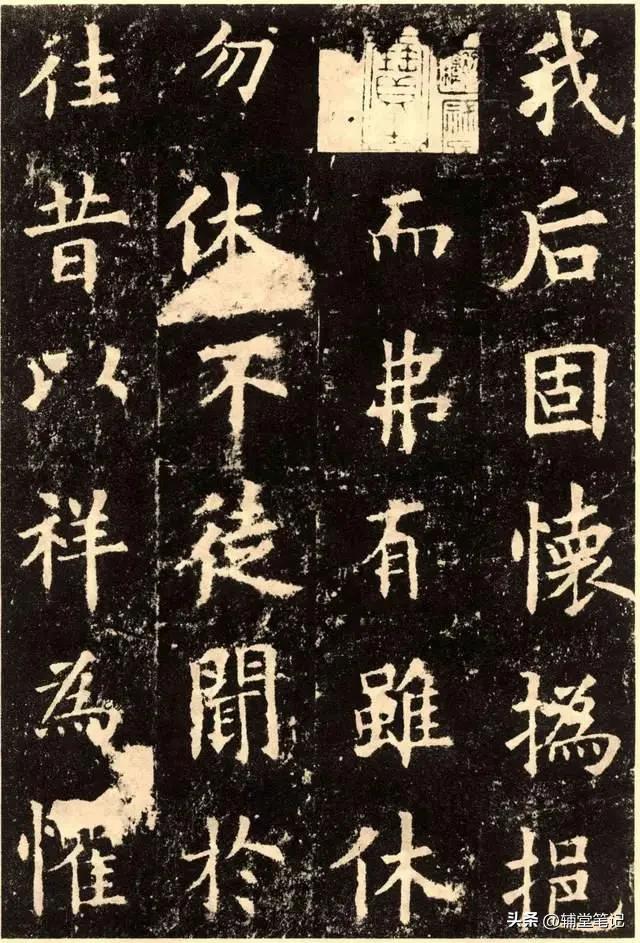 我后固懷撝挹
而弗有雖休
勿休不徒聞於
往昔以祥為懼
头条 @辅堂笔记